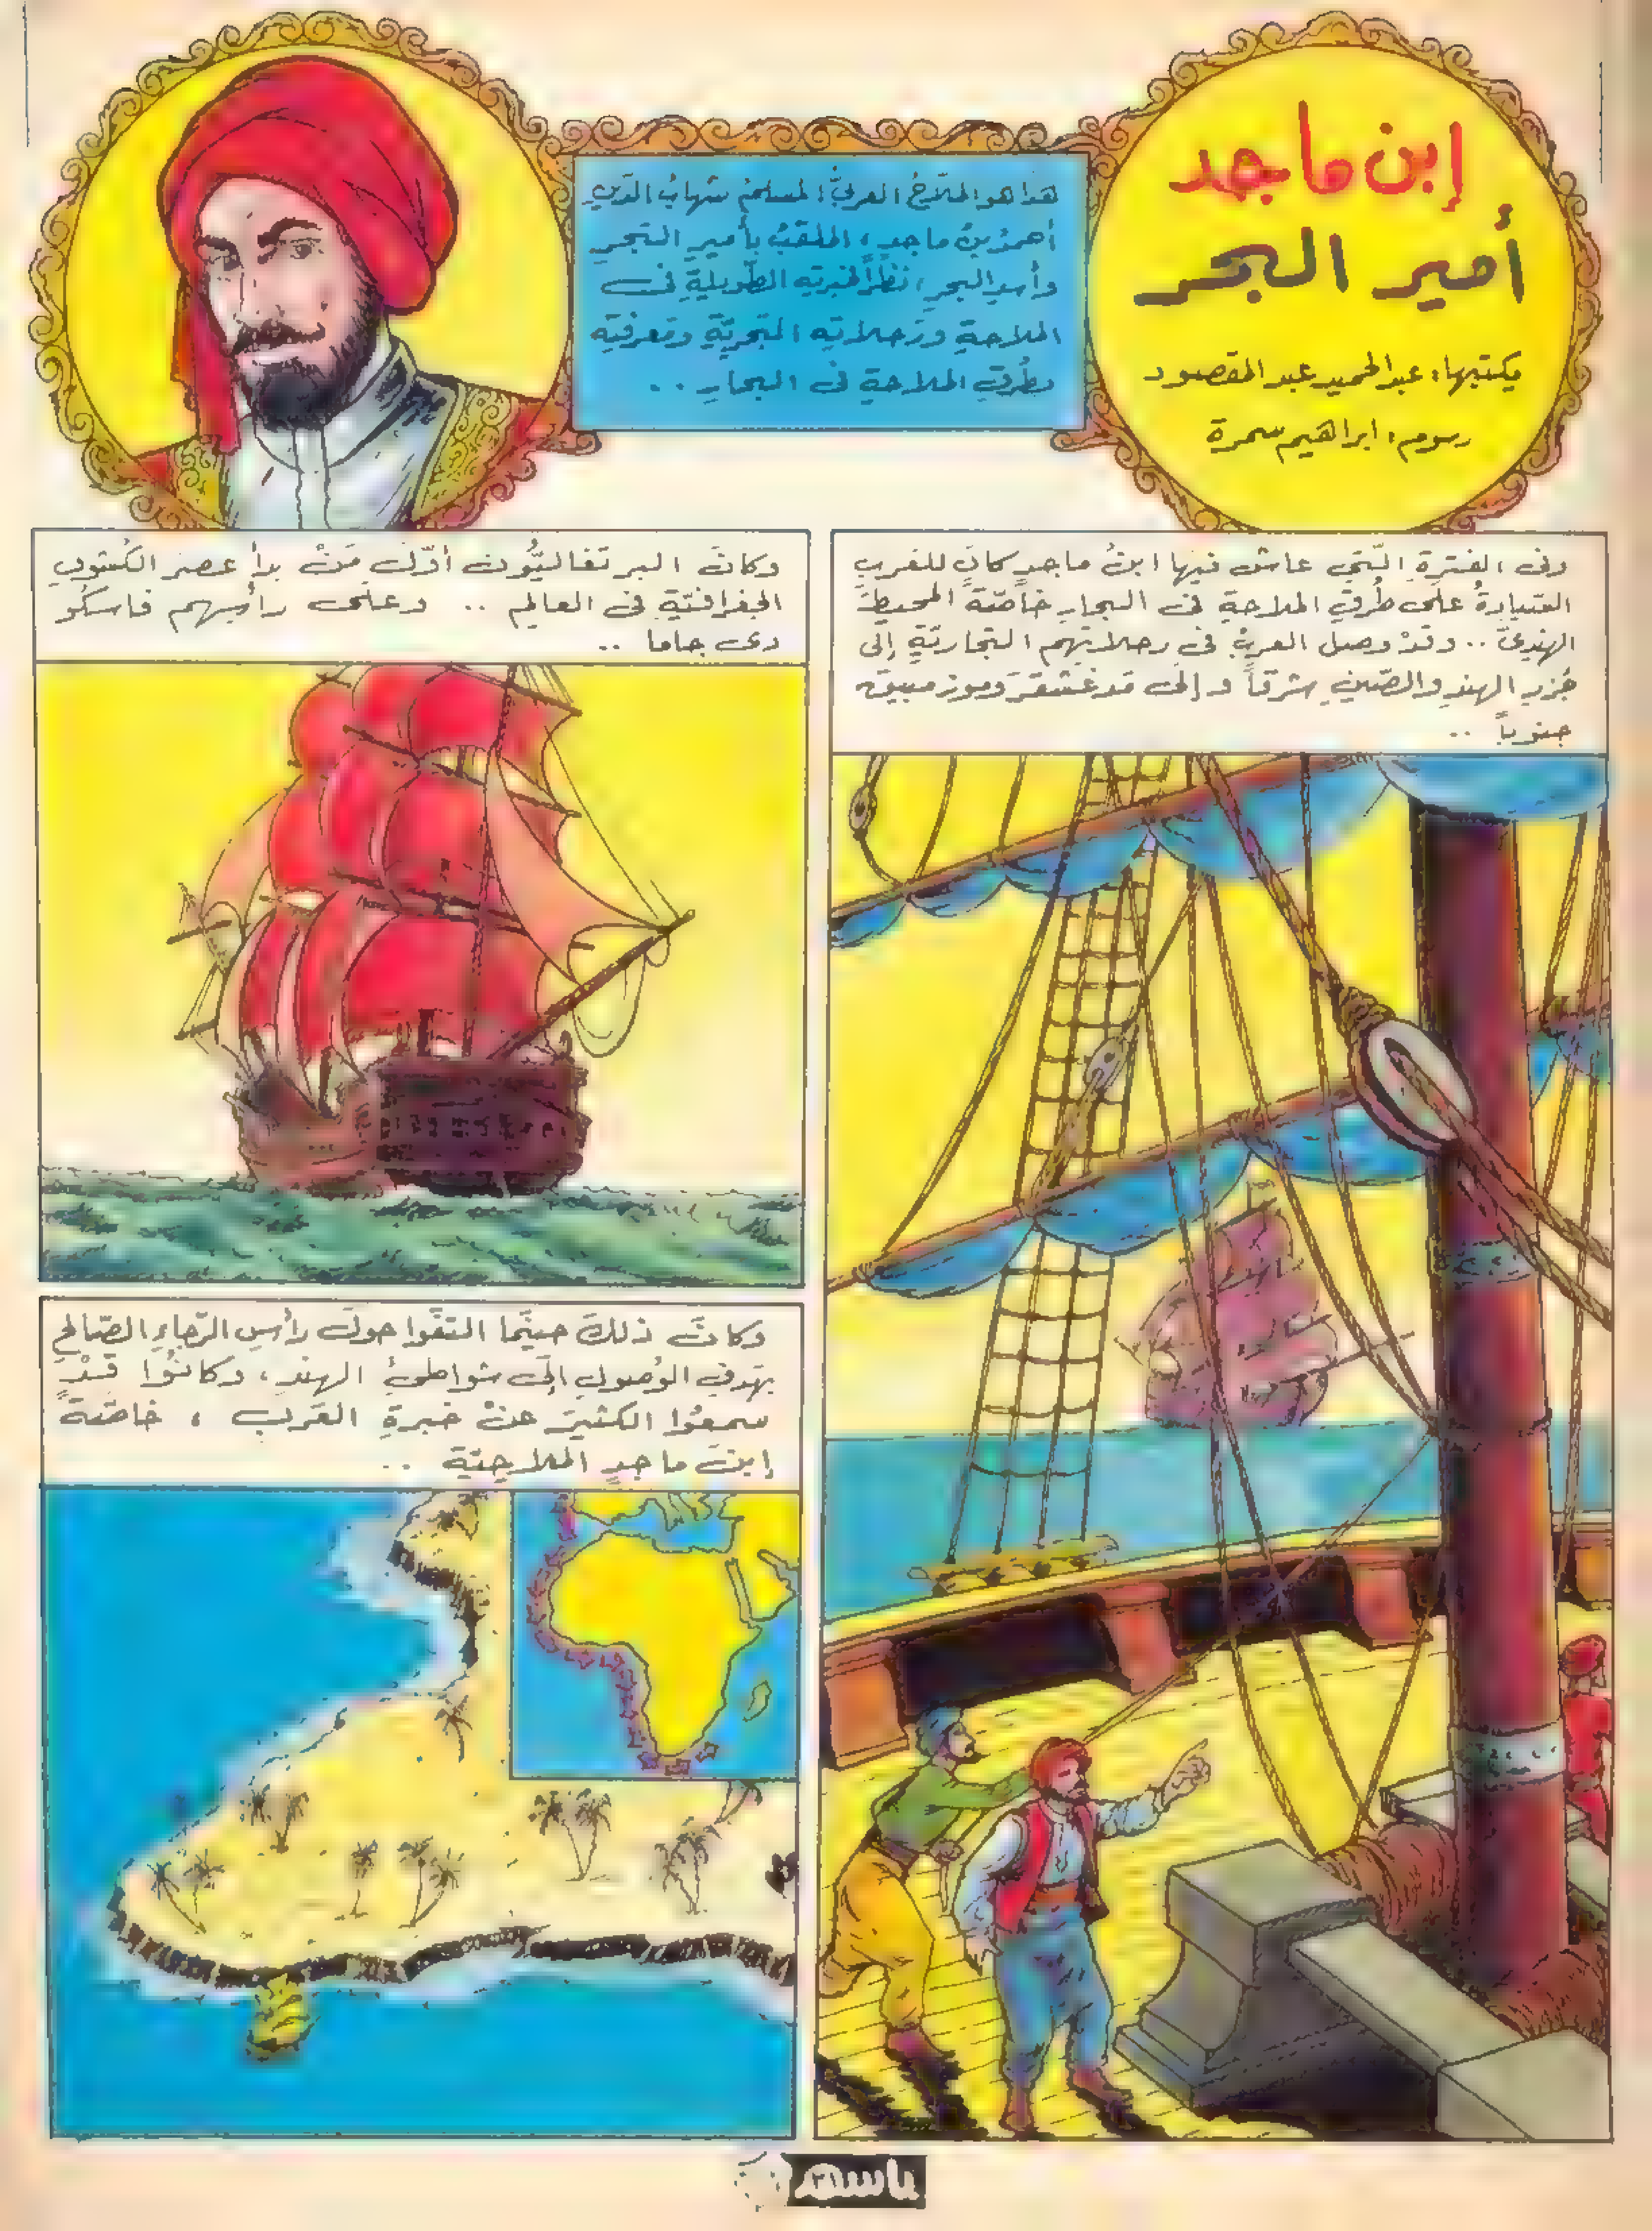 إبن ماجد
أمير البحر
يكتبها: عبد الحميد عبد المقصود
رسوم: ابراهيم سمرة
هذا هو الملّاحُ العربيُّ المسلمُ شهابُ الدّينِ
أحمدُ بنُ ماجدٍ، الملقبُ بأميرِ البحرِ
وأسدِ البحرِ، نظراً لخبرتِه الطّويلةِ فى
الملاحةِ ورحلاتِه البحريّةِ ومعرفتِه
بطُرقِ الملاحةِ فى البحارِ ..
وفى الفترةِ الّتى عاش فيها ابنُ ماجدٍ كانَ للعربِ
السّيادةُ على طُرقِ الملاحةِ فى البحارِ خاصّةً المحيطَ
الهندىَّ .. وقدْ وصل العربُ فى رحلاتِهم التجاريّةِ إلى
جُزرِ الهندِ والصّينِ شرقاً وإلى مدغشقرَ وموزمبيقَ
جنوباً ..
وكانَ البرتغاليُّون أوّلَ مَنْ بدأ عصر الكُشوفِ
الجغرافيّةِ فى العالمِ .. وعلى رأسِهم فاسكُو
دى جاما ..
وكانَ ذلكَ حينَما التفُّوا حولَ رأسِ الرّجاءِ الصّالحِ
بهَدفِ الوُصولِ إلى شواطئِ الهندِ، وكانُوا قدْ
سمعُوا الكثيرَ عنْ خبرةِ العَربِ ، خاصّةً
إبنَ ماجدٍ الملاحيّة ..
باسم